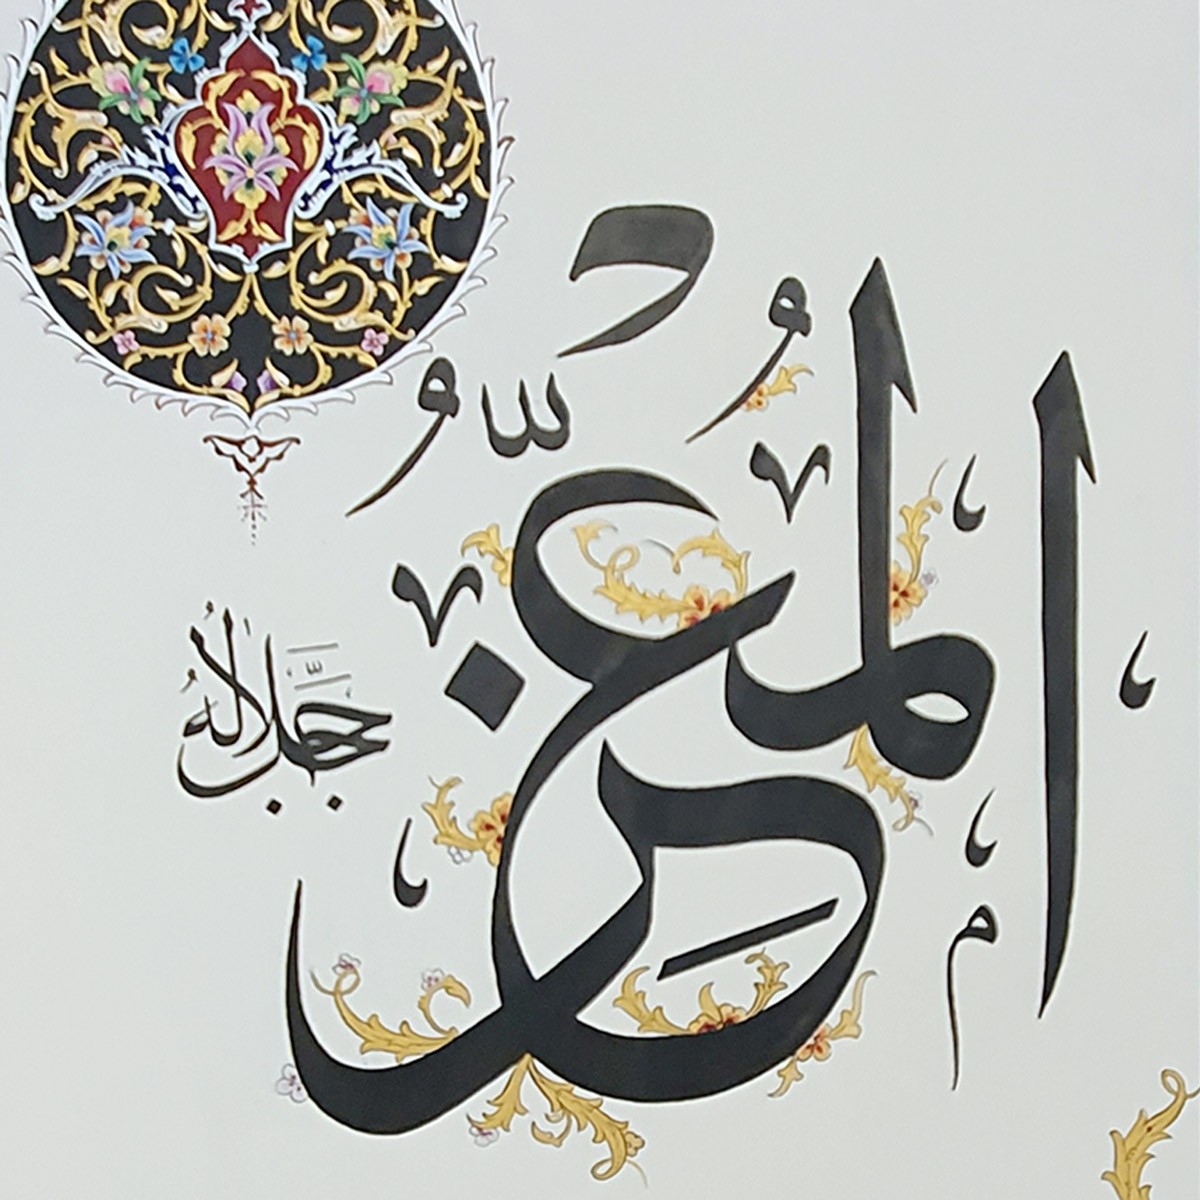 الْمُعِزُّ
جَلَّ جَلَالُهُ